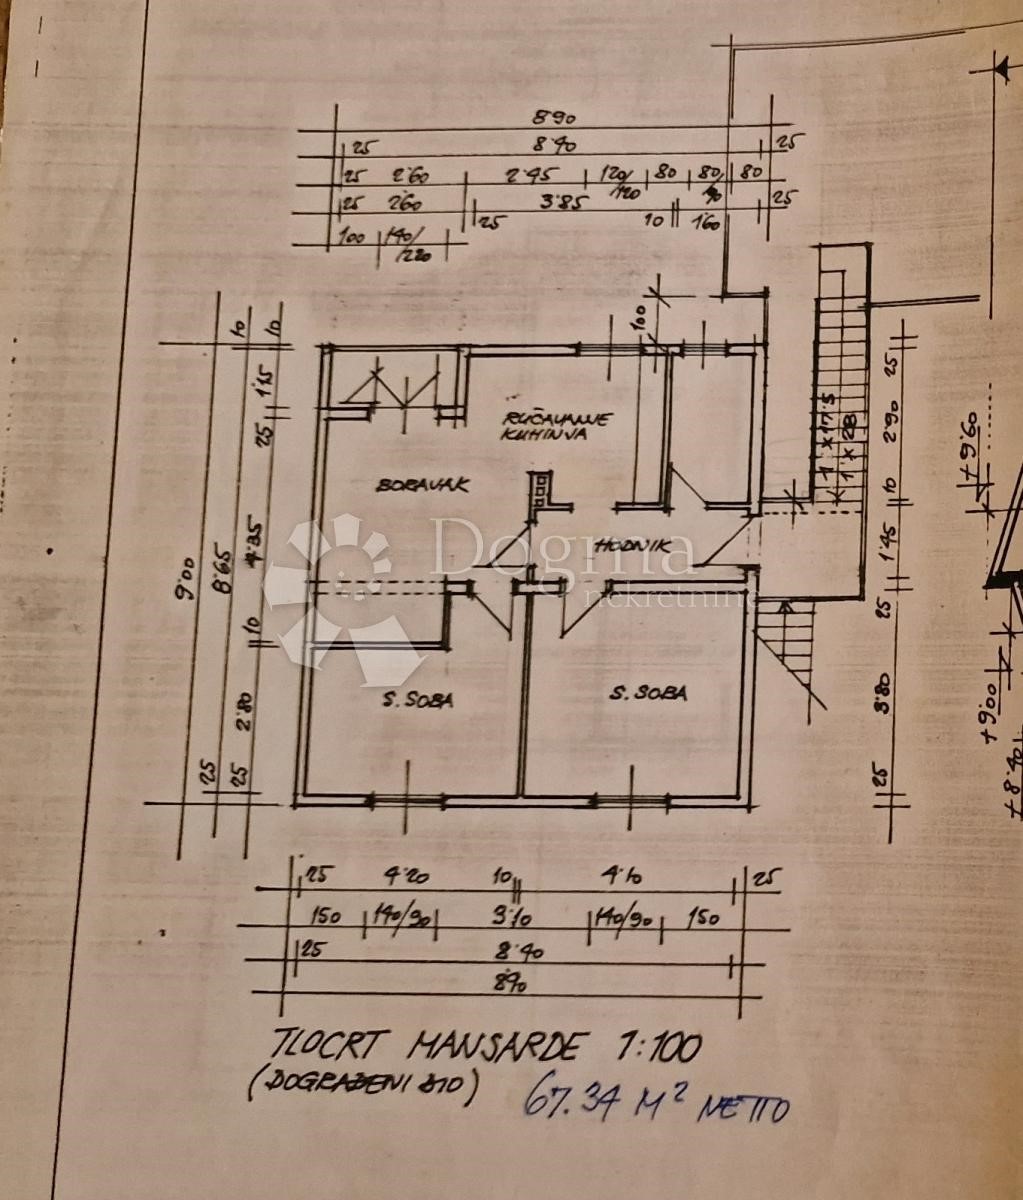 8.90
25 8.40 25
25 2.60 2.45 120/120 80 80/ 80
25 260 25 3.85 10 160 25
100 140/220
100
10 10
1.15
25
4.35
10
2.80
25 25
9.00
8.65
25
2.90
10
1.45
25
3.80
25
RUČAVANJE
KUHINJA
BORAVAK
HODNIK
S. SOBA
S. SOBA
Dogma
nekretnine
+9.60
+9.00
+8.40
25 4.20 10 4.10 25
150 140/90 3.10 140/90 150
25 8.40
8.90
TLOCRT MANSARDE 1:100
(DOGRAĐENI DIO)
67.34 M² NETTO